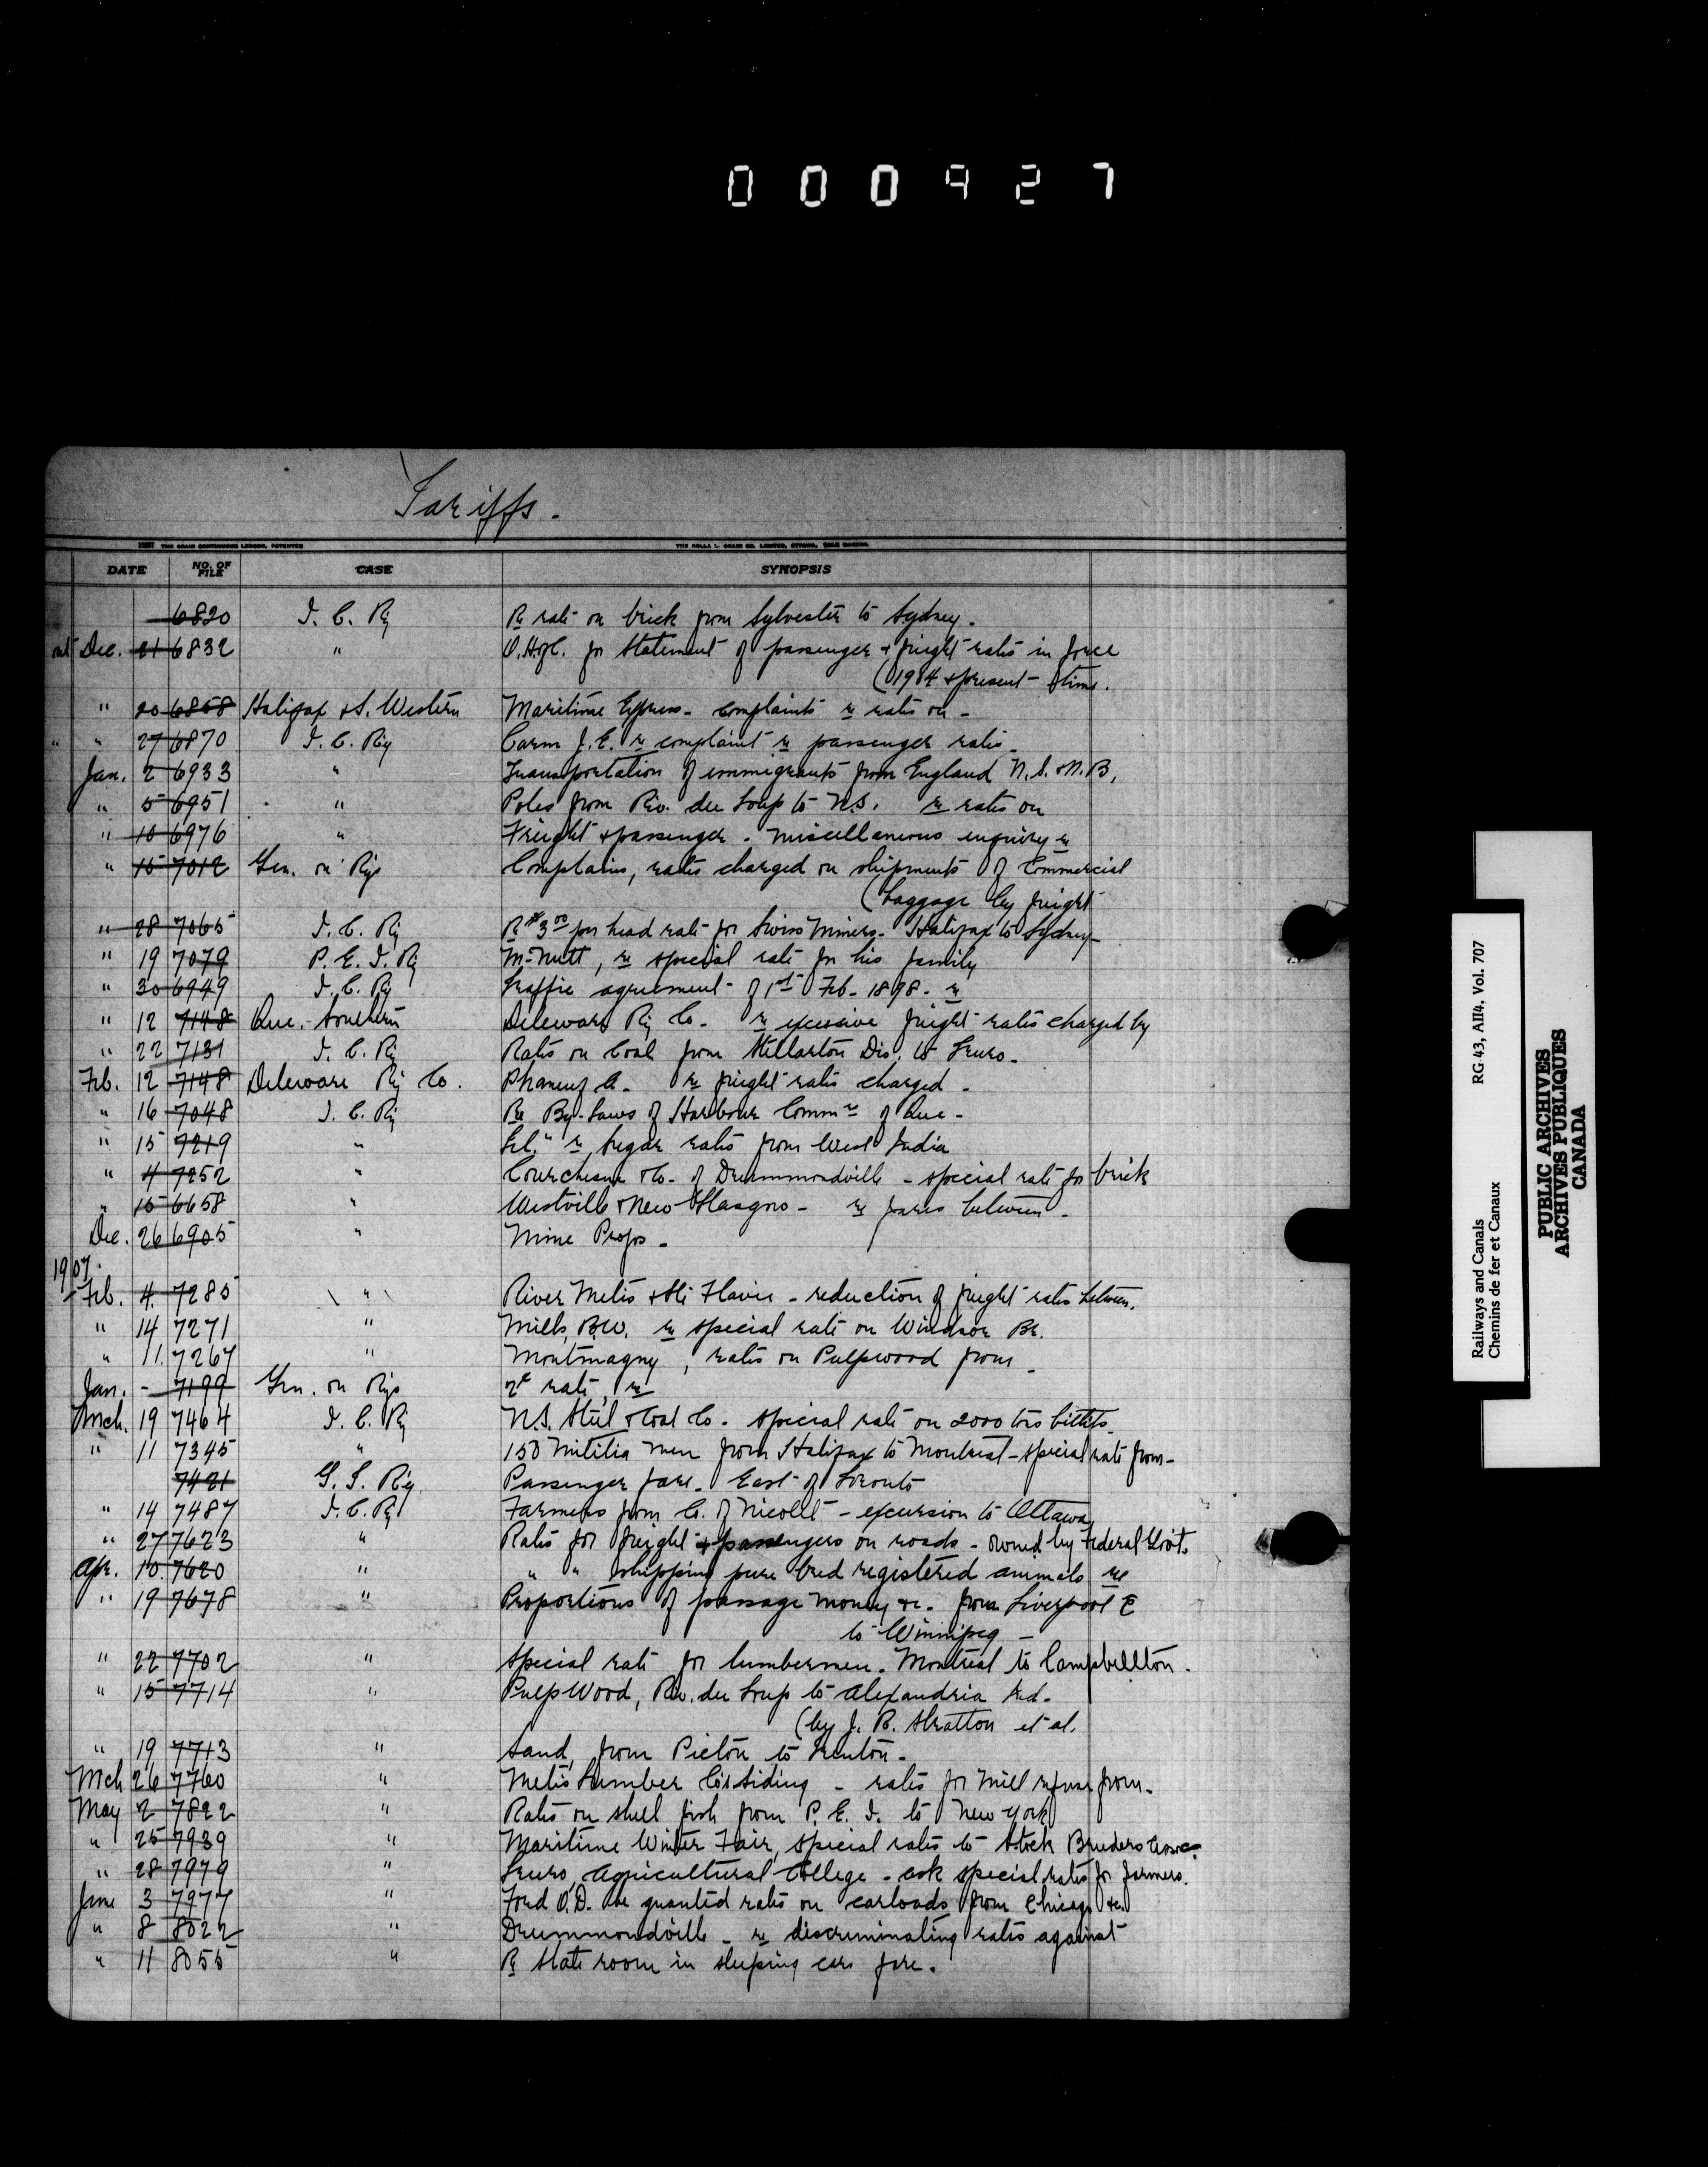 000927
Tariffs.
THE ROLLA L. CRAIN CO. LIMITED, OTTAWA,
DATE NO. OF FILE CASE SYNOPSIS
6820 I. C. Ry Re rate on brick from Sylvester to Sydney.
Dec. 21 6832 " O.H.of C. for Statement of passenger & freight rates in force
(1984 & present time.
" 20 6858 Halifax & S. Western Maritime Express - complaints re rates on -
" 27 6870 I. C. Ry Carm J.E. re complaint re passenger rates.
Jan. 2 6933 " Transportation of immigrants from England N.S. & N.B.
" 5 6951 " Poles from Riv. du Loup to N.S. re rates on
" 10 6976 " Freight & passenger - miscellaneous enquiry re
" 15 7012 Gen. on Rys Complains, rates charged on shipments of Commercial
(baggage by freight
" 28 7065 I. C. Ry Re $3.00 per head rate for Swiss Miners - Halifax to Sydney -
" 19 7079 P. E. I. Ry McNutt, re special rate for his family
" 30 6949 I. C. Ry Traffic agreement of 1st Feb. 1898. re
" 12 7148 Que. Southern Deleware Ry Co. re excessive freight rates charged by
" 22 7131 I. C. Ry Rates on Coal from Stellarton Dis. to Truro.
Feb. 12 7148 Deleware Ry Co. Phaneuf A. re freight rates charged -
" 16 7048 I. C. Ry Re By-Laws of Harbour Commrs of Que -
" 15 7219 " re Sugar rates from West India
" 4 7252 " Courchesne & Co. of Drummondville - special rate for brick
" 15 6658 " Westville & New Glasgow - re fares between -
Dec. 26 6905 " Mine Props -
1907.
Feb. 4 7285 " River Metis & Ste Flavie - reduction of freight rates between.
" 14 7271 " Mills, B.W. re special rate on Windsor Br.
" 11 7267 " Montmagny, rates on Pulpwood from -
Jan. - 7199 Gen. on Rys 2c rate, re
Mch. 19 7464 I. C. Ry N.S. Steel & Coal Co. special rate on 2000 tons billets
" 11 7345 " 150 Militia men from Halifax to Montreal - special rate from -
7421 G. T. Ry. Passenger fare. East of Toronto
" 14 7487 I. C. Ry Farmers from Co. of Nicolet - excursion to Ottawa
" 27 7623 " Rates for freight & passengers on roads - owned by Federal Gov't.
Apr. 10 7620 " " " shipping pure bred registered animals re
" 19 7678 " Proportions of passage money &c. from Liverpool E
to Winnipeg -
" 22 7702 " Special rate for lumbermen. Montreal to Campbellton.
" 15 7714 " Pulp Wood, Riv. du Loup to Alexandria Ind.
(by J. R. Stratton et al.
" 19 7713 " Sand, from Pictou to Trenton.
Mch 26 7760 " Metis Lumber Co's Siding - rates for mill refuse from -
May 2 7822 " Rates on shell fish from P. E. I. to New York
" 25 7939 " Maritime Winter Fair, special rates to Stock Breeders Assoc.
" 28 7979 " Truro, Agricultural College - ask special rates for farmers.
June 3 7977 " Ford O.D. be granted rates on carloads from Chicago &c.
" 8 8022 " Drummondville - re discriminating rates against
" 11 8055 " Re State room in sleeping cars fare.
Railways and Canals RG 43, AII4, Vol. 707
Chemins de fer et Canaux
PUBLIC ARCHIVES
ARCHIVES PUBLIQUES
CANADA